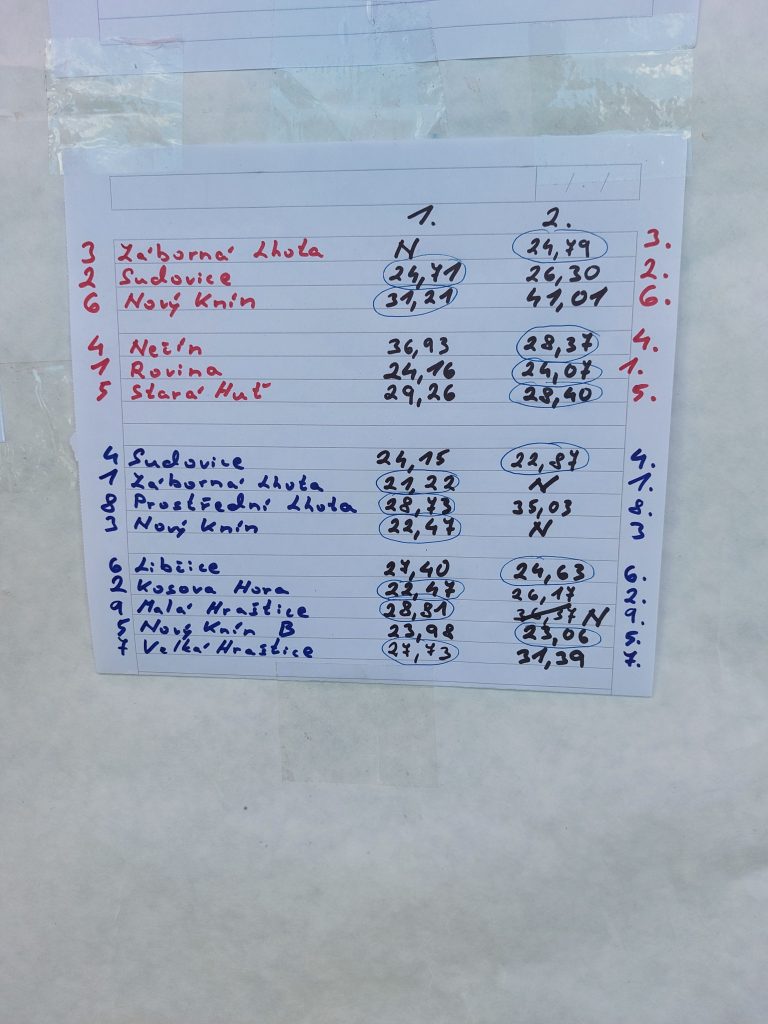 - / . /
1. 2.
3 Záborná Lhota N 24,79 3.
2 Sudovice 24,71 26,30 2.
6 Nový Knín 31,21 41,01 6.
4 Nečín 36,93 28,37 4.
1 Rovina 24,16 24,07 1.
5 Stará Huť 29,26 28,40 5.
4 Sudovice 24,15 22,87 4.
1 Záborná Lhota 21,22 N 1.
8 Prostřední Lhota 28,73 35,03 8.
3 Nový Knín 22,47 N 3
6 Libčice 27,40 24,63 6.
2 Kosova Hora 22,47 26,17 2.
9 Malá Hraštice 28,81 N 9.
5 Nový Knín B 23,98 23,06 5.
7 Velká Hraštice 27,73 31,39 7.